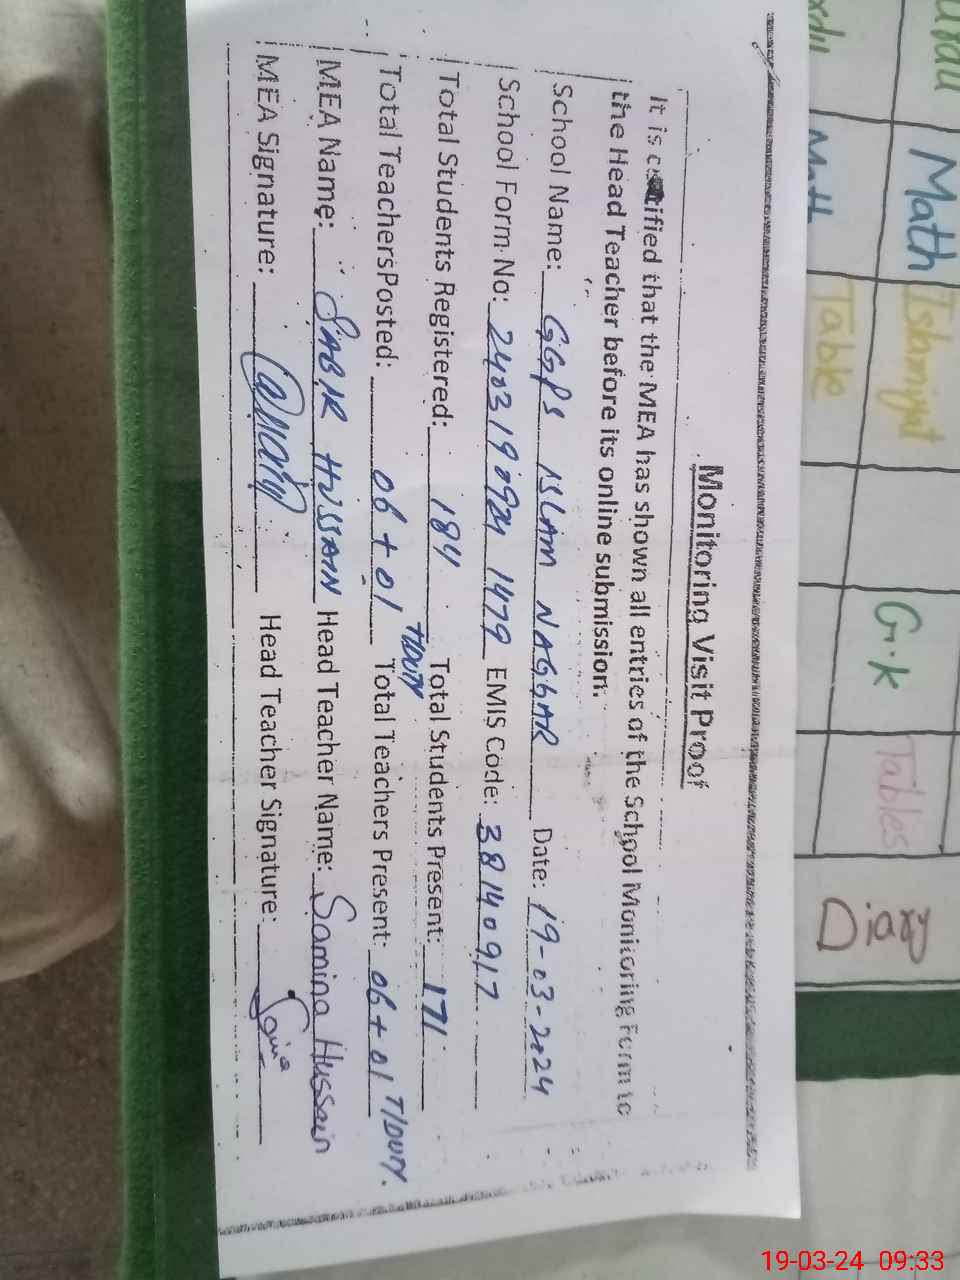 Monitoring Visit Proof
It is certified that the MEA has shown all entries of the School Monitoring Form to
the Head Teacher before its online submission.
School Name: GGPS ISLAM NAGGAR Date: 19-03-2024
School Form No: 240319092 1479 EMIS Code: 38140917
Total Students Registered: 184 Total Students Present: 171
Total Teachers Posted: 06 + 01 T/DUTY Total Teachers Present: 06 + 01 T/DUTY.
MEA Name: HUSSAIN Head Teacher Name: Samina Hussain
MEA Signature: Head Teacher Signature:
Math
G.K
Tables
Table
Diary
19-03-24 09:33